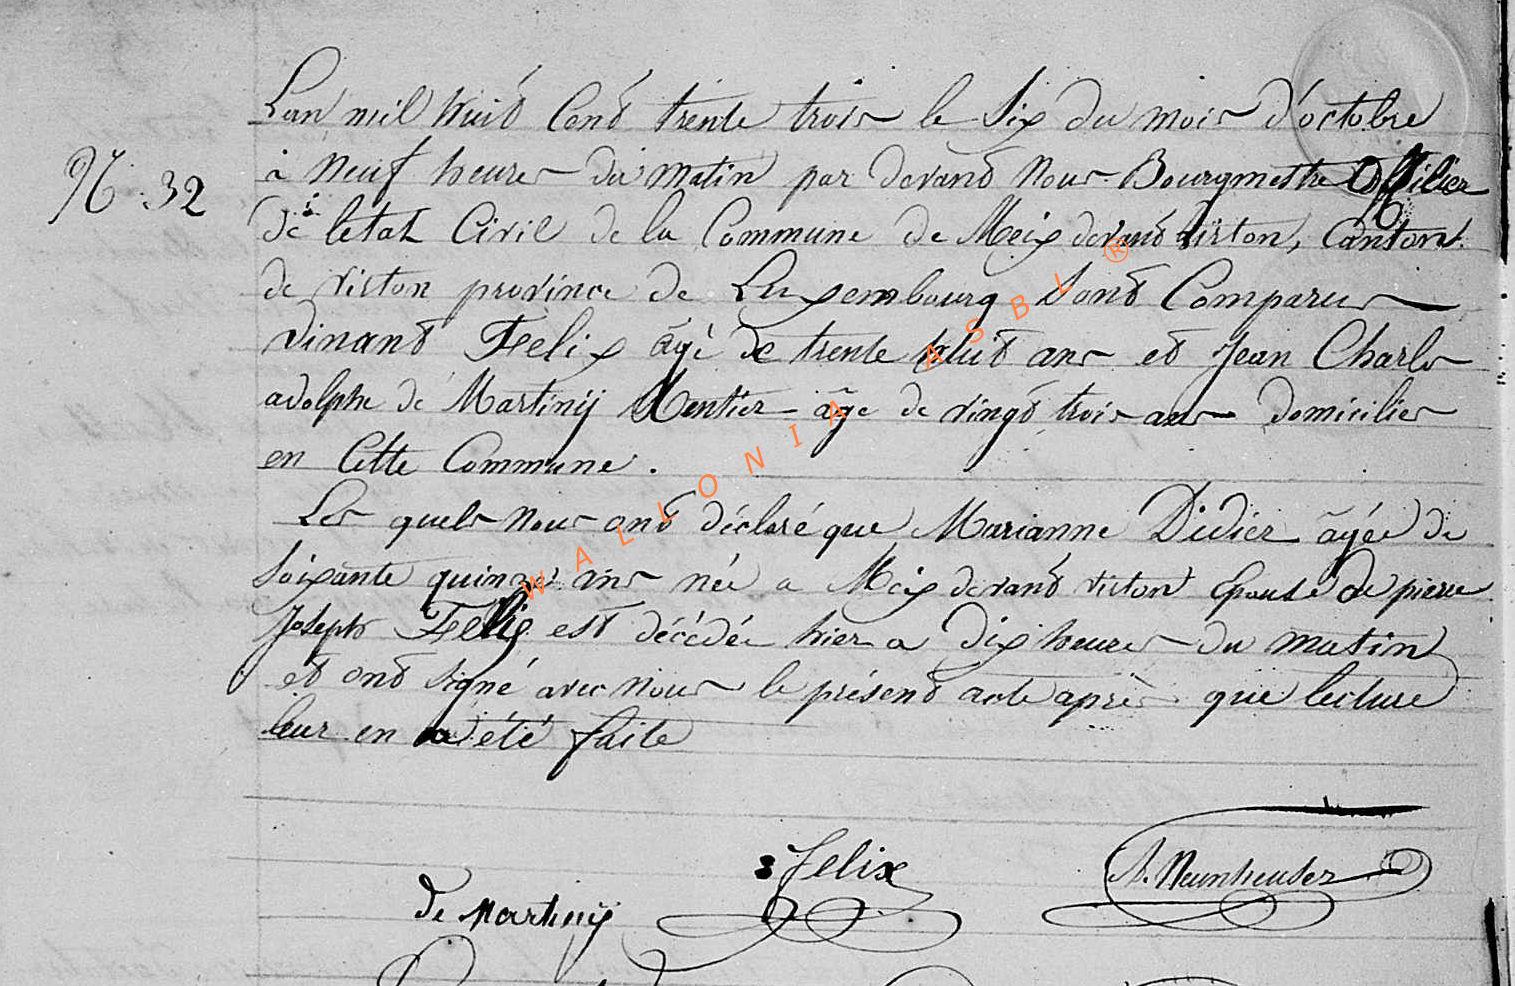 L'an mil huit Cent trente trois le Six du mois d'octobre
N° 32
à neuf heures du matin par devant nous Bourgmestre Officier
de l'etat Civil de la Commune de Meix devant virton, Canton
de virton province de Luxembourg Sont Comparus
dinant Felix âgé de trente huit ans et Jean Charles
adolphe de Martiny Rentier âge de vingt trois ans domicilies
en Cette Commune.
Les quels nous ont déclaré que Marianne Didier âgée de
Soixante quinze ans née a Meix devant virton Epouse de pierre
Joseph Felix est décédée hier a dix heures du matin
et ont signé avec nous le présent acte après que lecture
leur en a été faite
Felix
de Martiny
WALLONIA ASBL ®